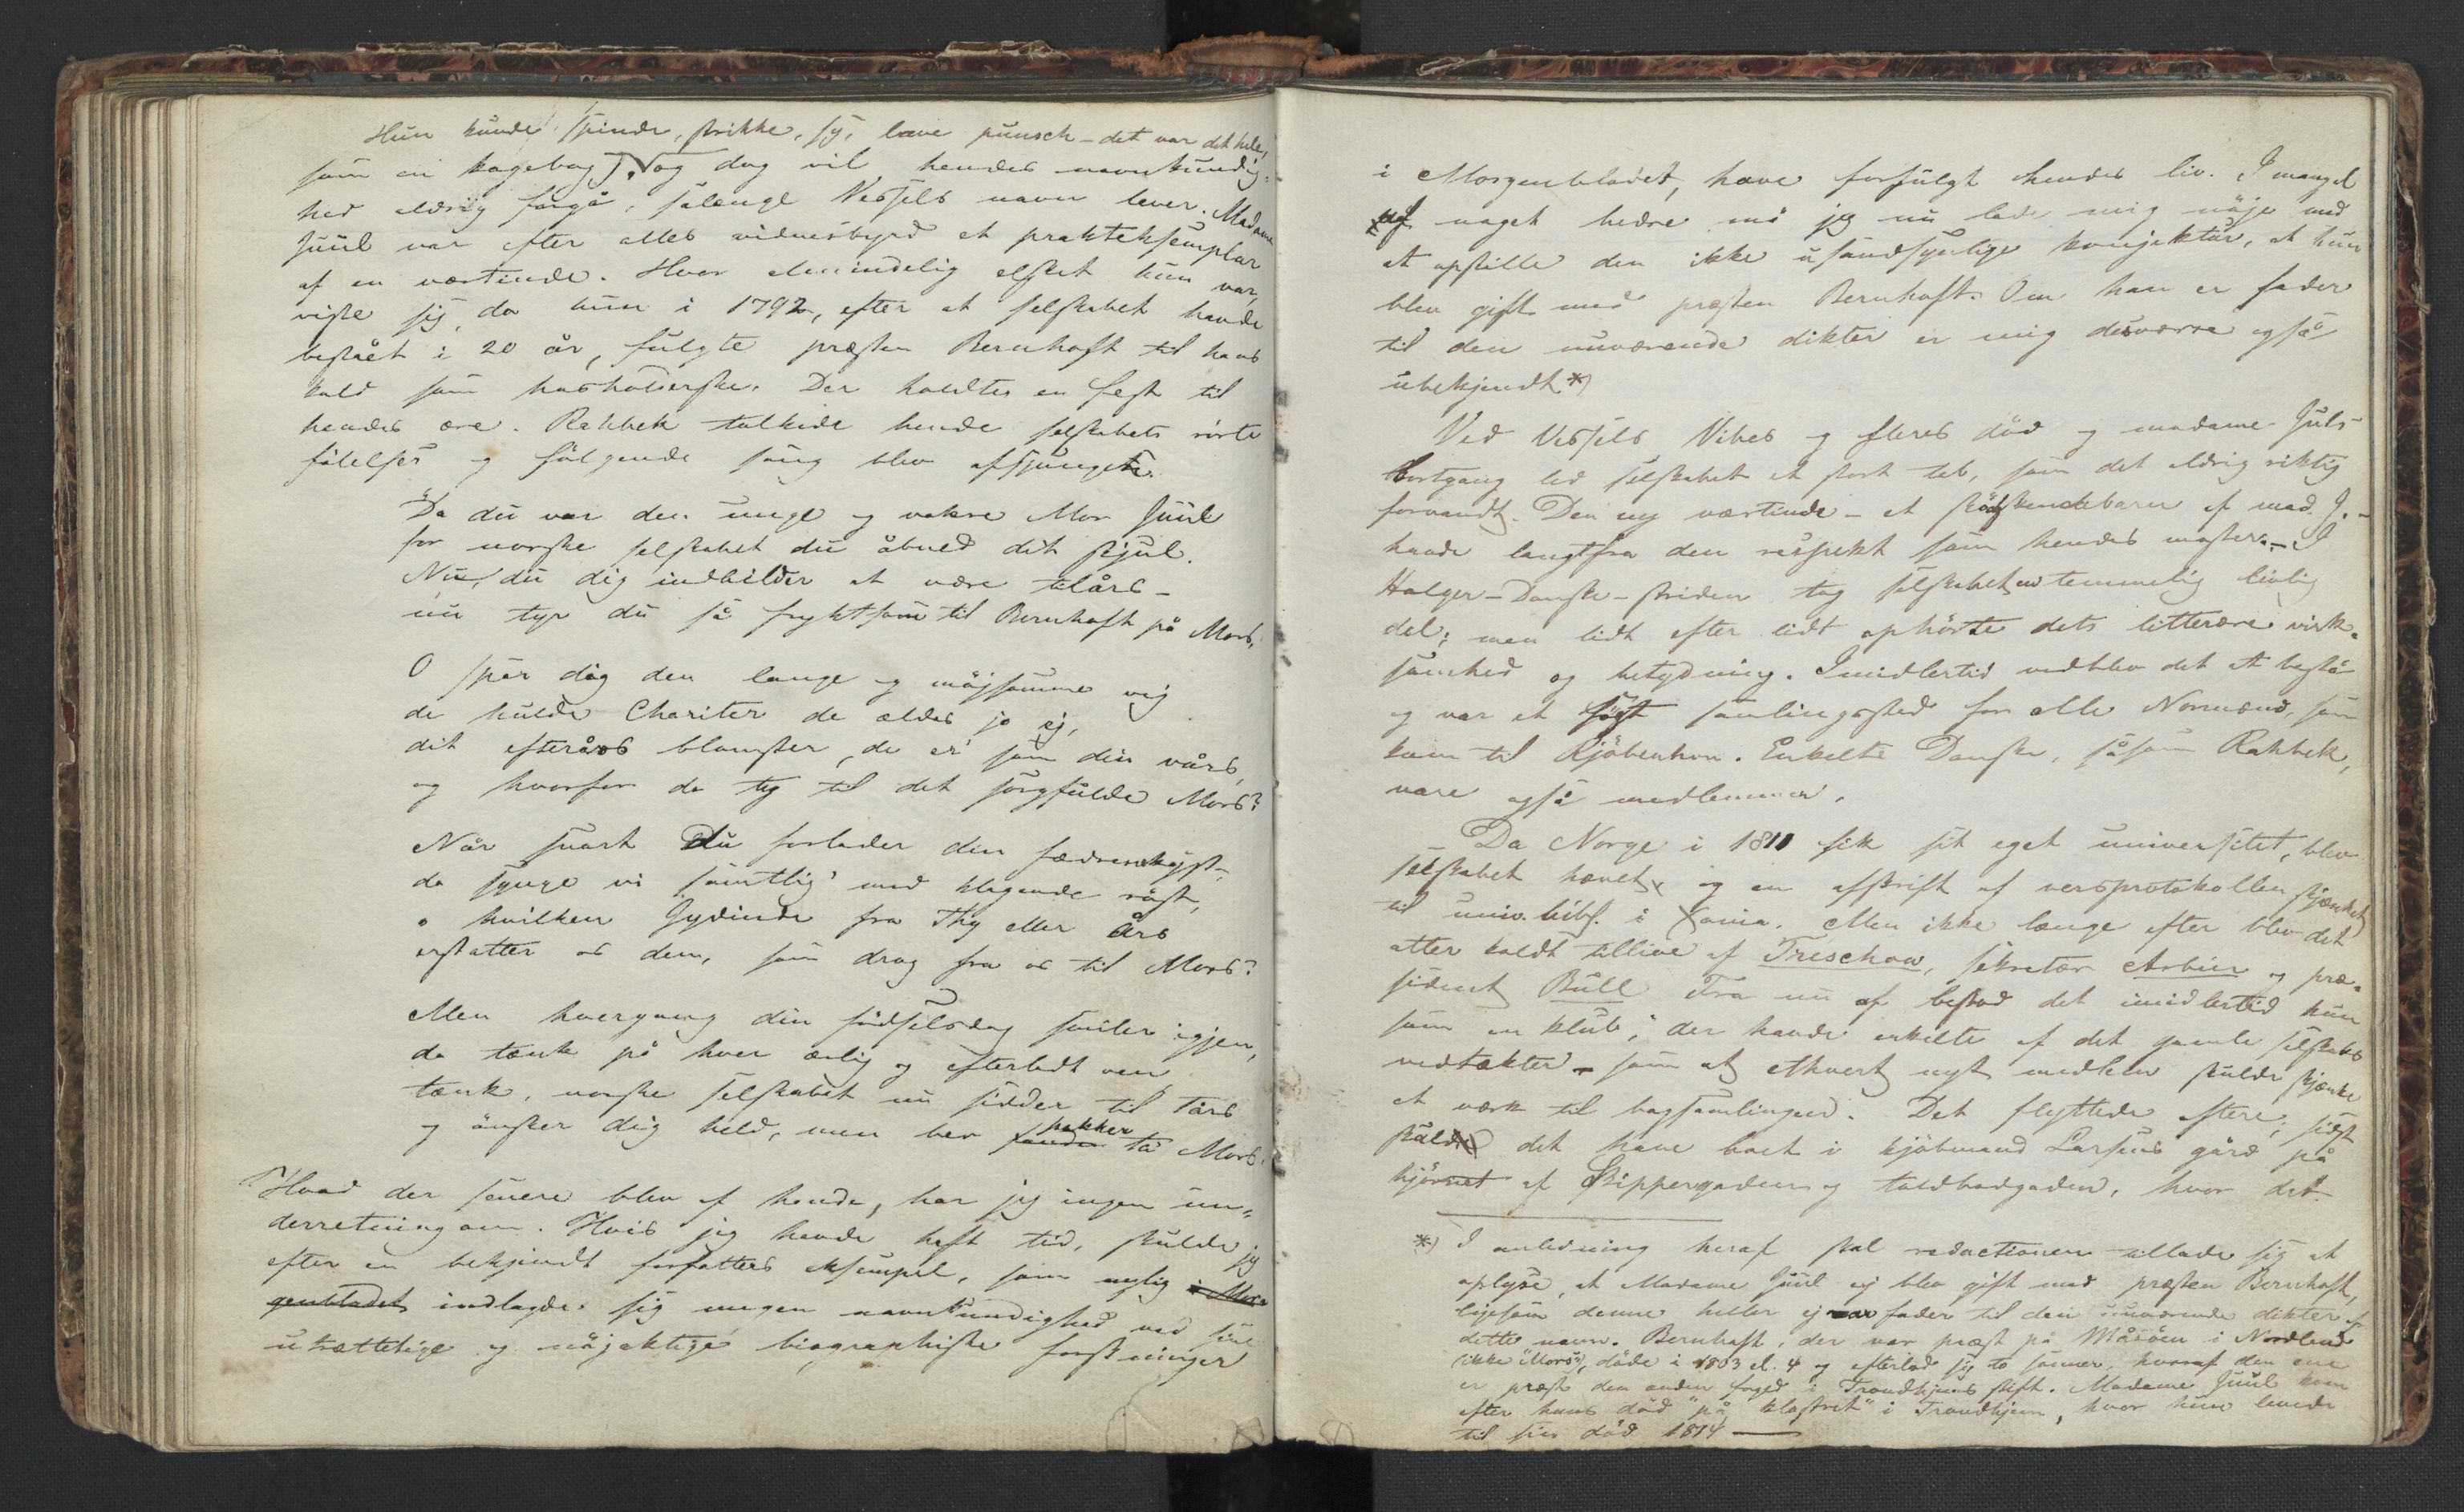 Hun kunde spinde, strikke, sy, lave punsch – det var det hele,
som en kagebag), og dog vil hendes navnkundig-
hed aldrig forgå, sålænge Vessels navn lever. Madame
Juul var efter alles vidnesbyrd et prakteksemplar
af en værtinde. Hvor almindelig elsket hun var,
viste sig, da hun i 1792, efter at selskabet havde
bestået i 20 år, fulgte præsten Bernhoft til hans
kald som husholderske. Der holdtes en fest til
hendes ære. Rahbek tolkede hende selskabets rörte
fölelser og fölgende sang blev afsjunget:
Da du var den unge og vakre Mor Juul
for norske selskabet du åbned dit skjul.
Nu, du dig indbilder at være tilårs –
nu tyr du så fryktsom til Bernhoft på Mors.
O spar dog den lange og möjsomme vej
de hulde Chariter de ældes jo ej,
dit efterårs blomster, de er som din vårs,
og hvorfor da ty til det sorgfulde Mors?
Når snart du forlader din fædrenekyst,
da synge vi samtlig' med klagende röst,
o hvilken Gydinde fra Thy eller Års
erstatter os dem, som drog fra os til Mors?
Men hvergang din födselsdag smiler igjen,
da tænk på hver ærlig og efterladt ven
tænk, norske selskabet nu sidder til Tårs
og önsker dig held, men ber fanden pokker ta Mors.
Hvad der senere blev af hende, har jeg ingen un-
derretning om. Hvis jeg havde haft tid, skulde jeg
efter en bekjendt forfatters eksempel, som nylig i Mor-
genbladet indlagde sig megen navnkundighed ved sine
utrættelige og nöjaktige biographiske forskninger
i Morgenbladet, have forfulgt hendes liv. I mangel
af noget bedre må jeg nu lade mig nöje med
at opstille den ikke usandsynlige konjektur, at hun
blev gift med præsten Bernhoft. Om han er fader
til den nuværende dikter er mig desværre også
ubekjendt *)
Ved Vessels Vibes og fleres död og madame Juls
bortgang led selskabet et stort tab, som det aldrig riktig
forvandt. Den ny værtinde – et södskendebarn af mad. J. –
havde langtfra den respekt som hendes moster. – I
Holger-Danske-striden tog selskabet en temmelig livlig
del; men lidt efter lidt ophörte dets litterære virk-
somhed og betydning. Imidlertid vedblev det at bestå
og var et sögt samlingssted for alle Normænd, som
kom til Kjöbenhavn. Enkelte Danske, såsom Rahbek,
vare også medlemmer.
Da Norge i 1811 fik sit eget universitet, blev
selskabet hævet, og en afskrift af versprotokollen skjænket
til univ. bibl. i Xania. Men ikke længe efter blev det
atter kaldt tillive af Treschow, sekretær Arbien og præ-
sident Bull. Fra nu af bestod det imidlertid kun
som en klub, der havde enkelte af det gamle selskabs
vedtækter – som at ethvert nyt medlem skulde skjænke
et værk til bogsamlingen. Det flyttede oftere; sidst
skulde det have boet i kjöbmand Larsens gård på
hjörnet af Skippergaden og toldbodgaden, hvor det
*) I anledning heraf skal redactionen tillade sig at
oplyse, at Madame Juul ej blev gift med præsten Bernhoft,
ligesom denne heller ej var fader til den nuværende dikter af
dette navn. Bernhoft, der var præst på Måsöen i Nordland
(ikke "Mors"), döde i 1803 el. 4 og efterlod sig to sönner, hvoraf den ene
er præst den anden foged i Trondhjems stift. Madame Juul kom
efter hans död "på klostret" i Trondhjem, hvor hun levede
til sin död 1814 —